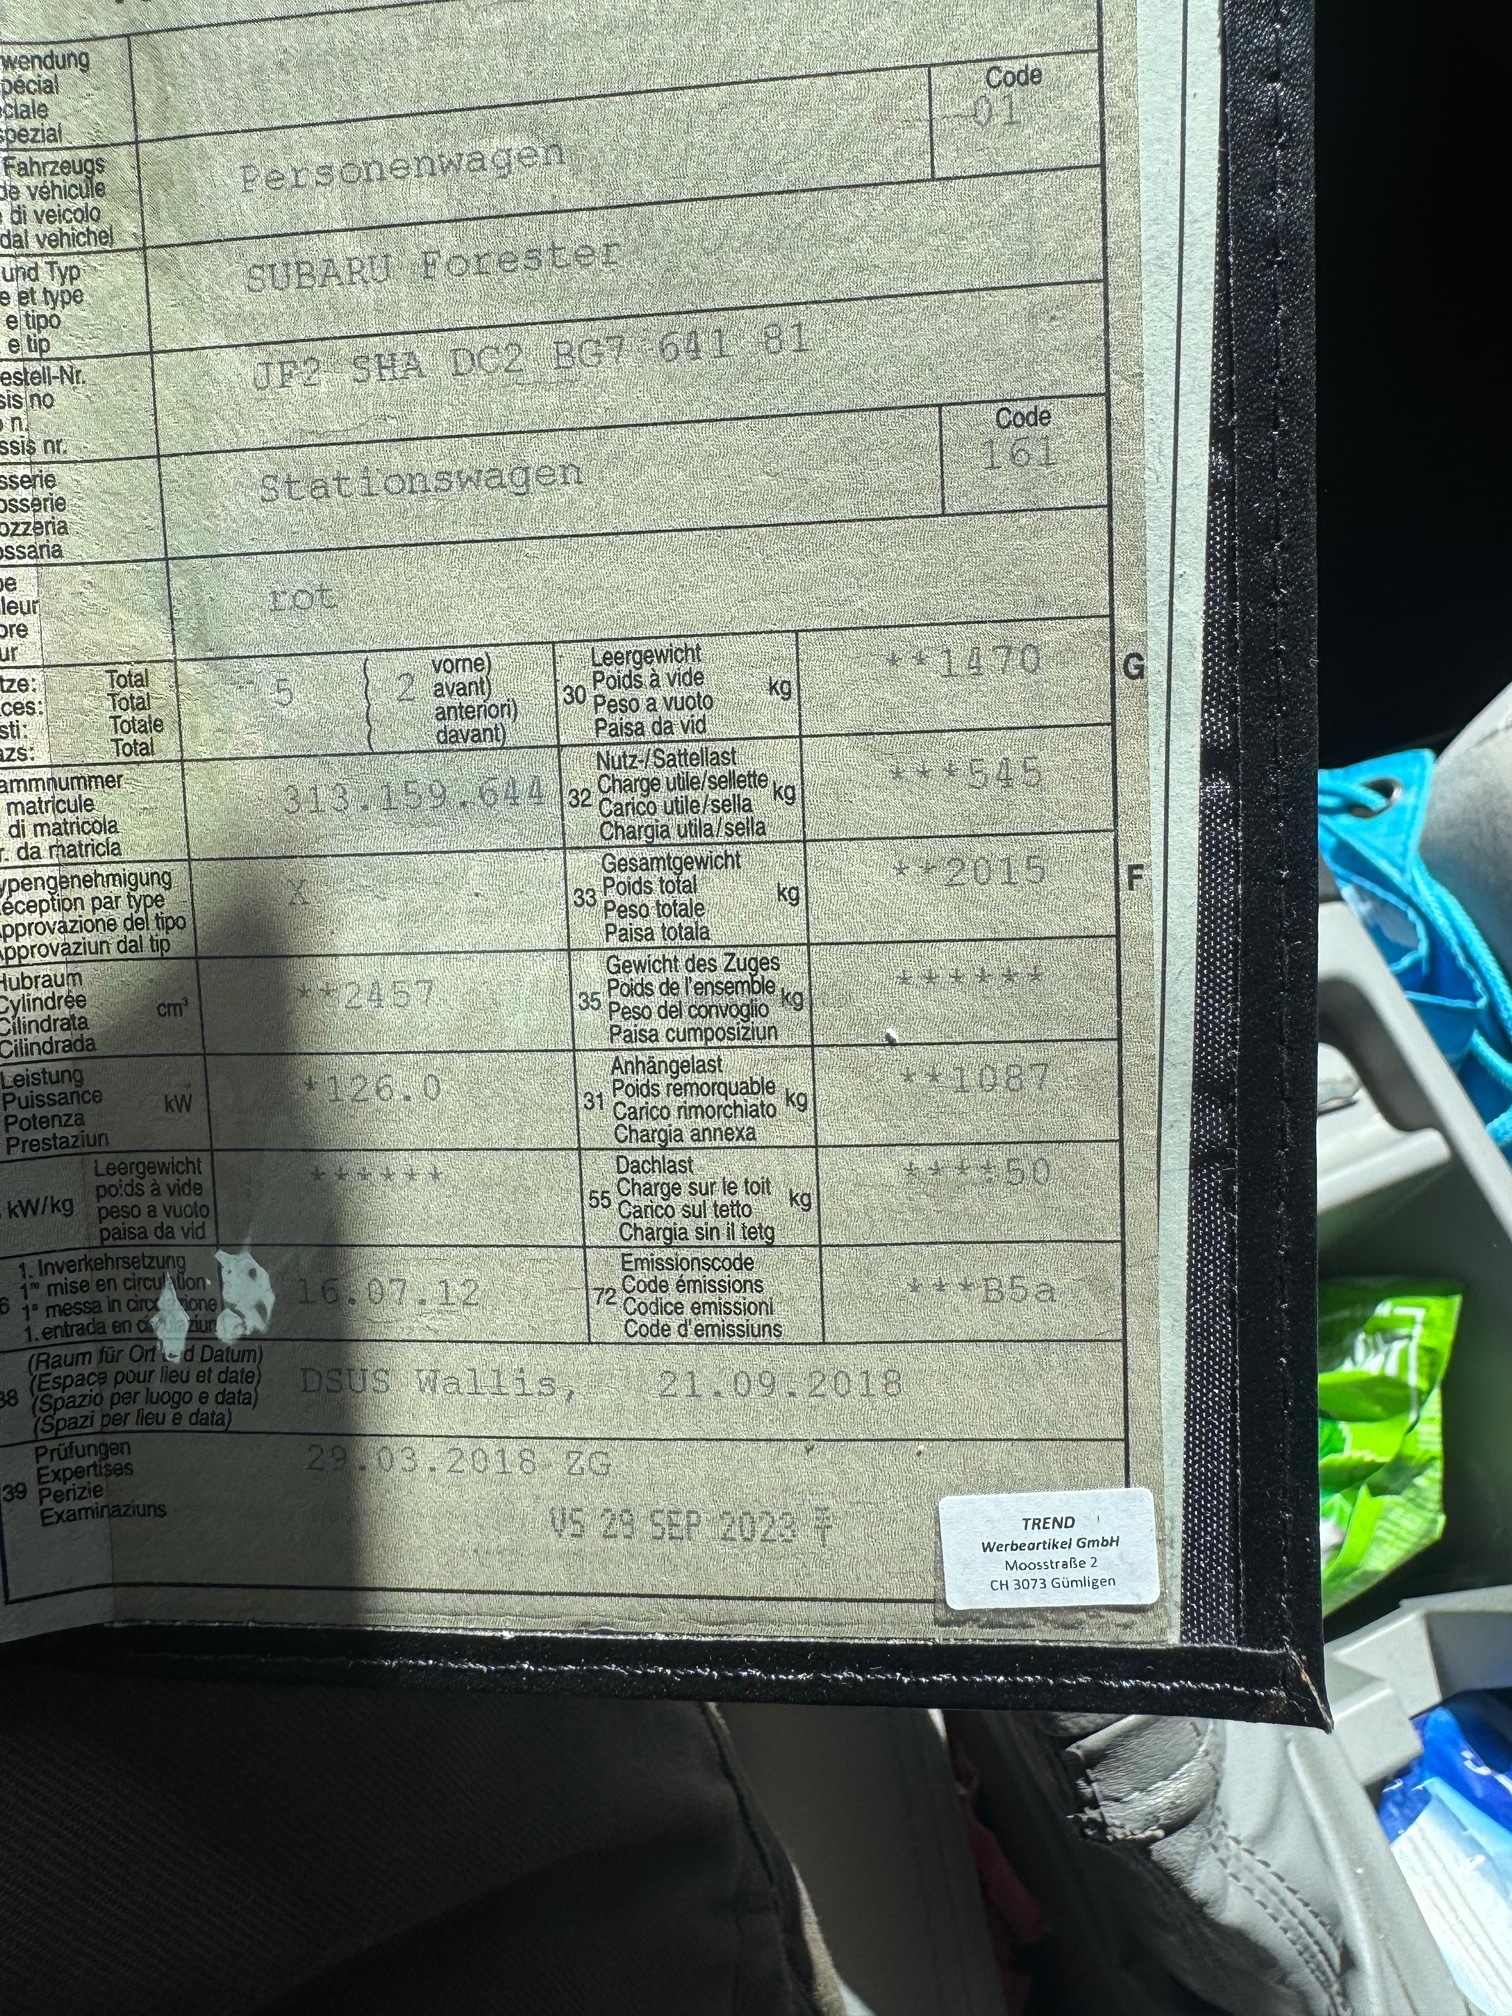 wendung
pécial
ciale
spezial
Code
01
Fahrzeugs
de véhicule
di veicolo
dal vehichel
Personenwagen
und Typ
e et type
e tipo
e tip
SUBARU Forester
estell-Nr.
sis no
n.
ssis nr.
JF2 SHA DC2 BG7 641 81
sserie
osserie
ozzeria
ossaria
Stationswagen
Code
161
be
leur
ore
ur
rot
tze: Total
ces: Total
sti: Totale
azs: Total
5 ( 2 vorne)
avant)
anteriori)
davant)
30 Leergewicht
Poids à vide
Peso a vuoto
Paisa da vid
kg
**1470
G
ammnummer
matricule
di matricola
r. da matricla
313.159.644
32 Nutz-/Sattellast
Charge utile/sellette
Carico utile/sella
Chargia utila/sella
kg
***545
ypengenehmigung
éception par type
Approvazione del tipo
Approvaziun dal tip
X
33 Gesamtgewicht
Poids total
Peso totale
Paisa totala
kg
**2015
F
Hubraum
Cylindrée
Cilindrata
Cilindrada
cm³
**2457
35 Gewicht des Zuges
Poids de l'ensemble
Peso del convoglio
Paisa cumposiziun
kg
******
Leistung
Puissance
Potenza
Prestaziun
kW
*126.0
31 Anhängelast
Poids remorquable
Carico rimorchiato
Chargia annexa
kg
**1087
kW/kg
Leergewicht
poids à vide
peso a vuoto
paisa da vid
******
55 Dachlast
Charge sur le toit
Carico sul tetto
Chargia sin il tetg
kg
****50
6
1. Inverkehrsetzung
1re mise en circulation
1a messa in circolazione
1. entrada en circulaziun
16.07.12
72 Emissionscode
Code émissions
Codice emissioni
Code d'emissiuns
***B5a
38
(Raum für Ort und Datum)
(Espace pour lieu et date)
(Spazio per luogo e data)
(Spazi per lieu e data)
DSUS Wallis, 21.09.2018
39
Prüfungen
Expertises
Perizie
Examinaziuns
29.03.2018 ZG
VS 29 SEP 2023
TREND
Werbeartikel GmbH
Moosstraße 2
CH 3073 Gümligen